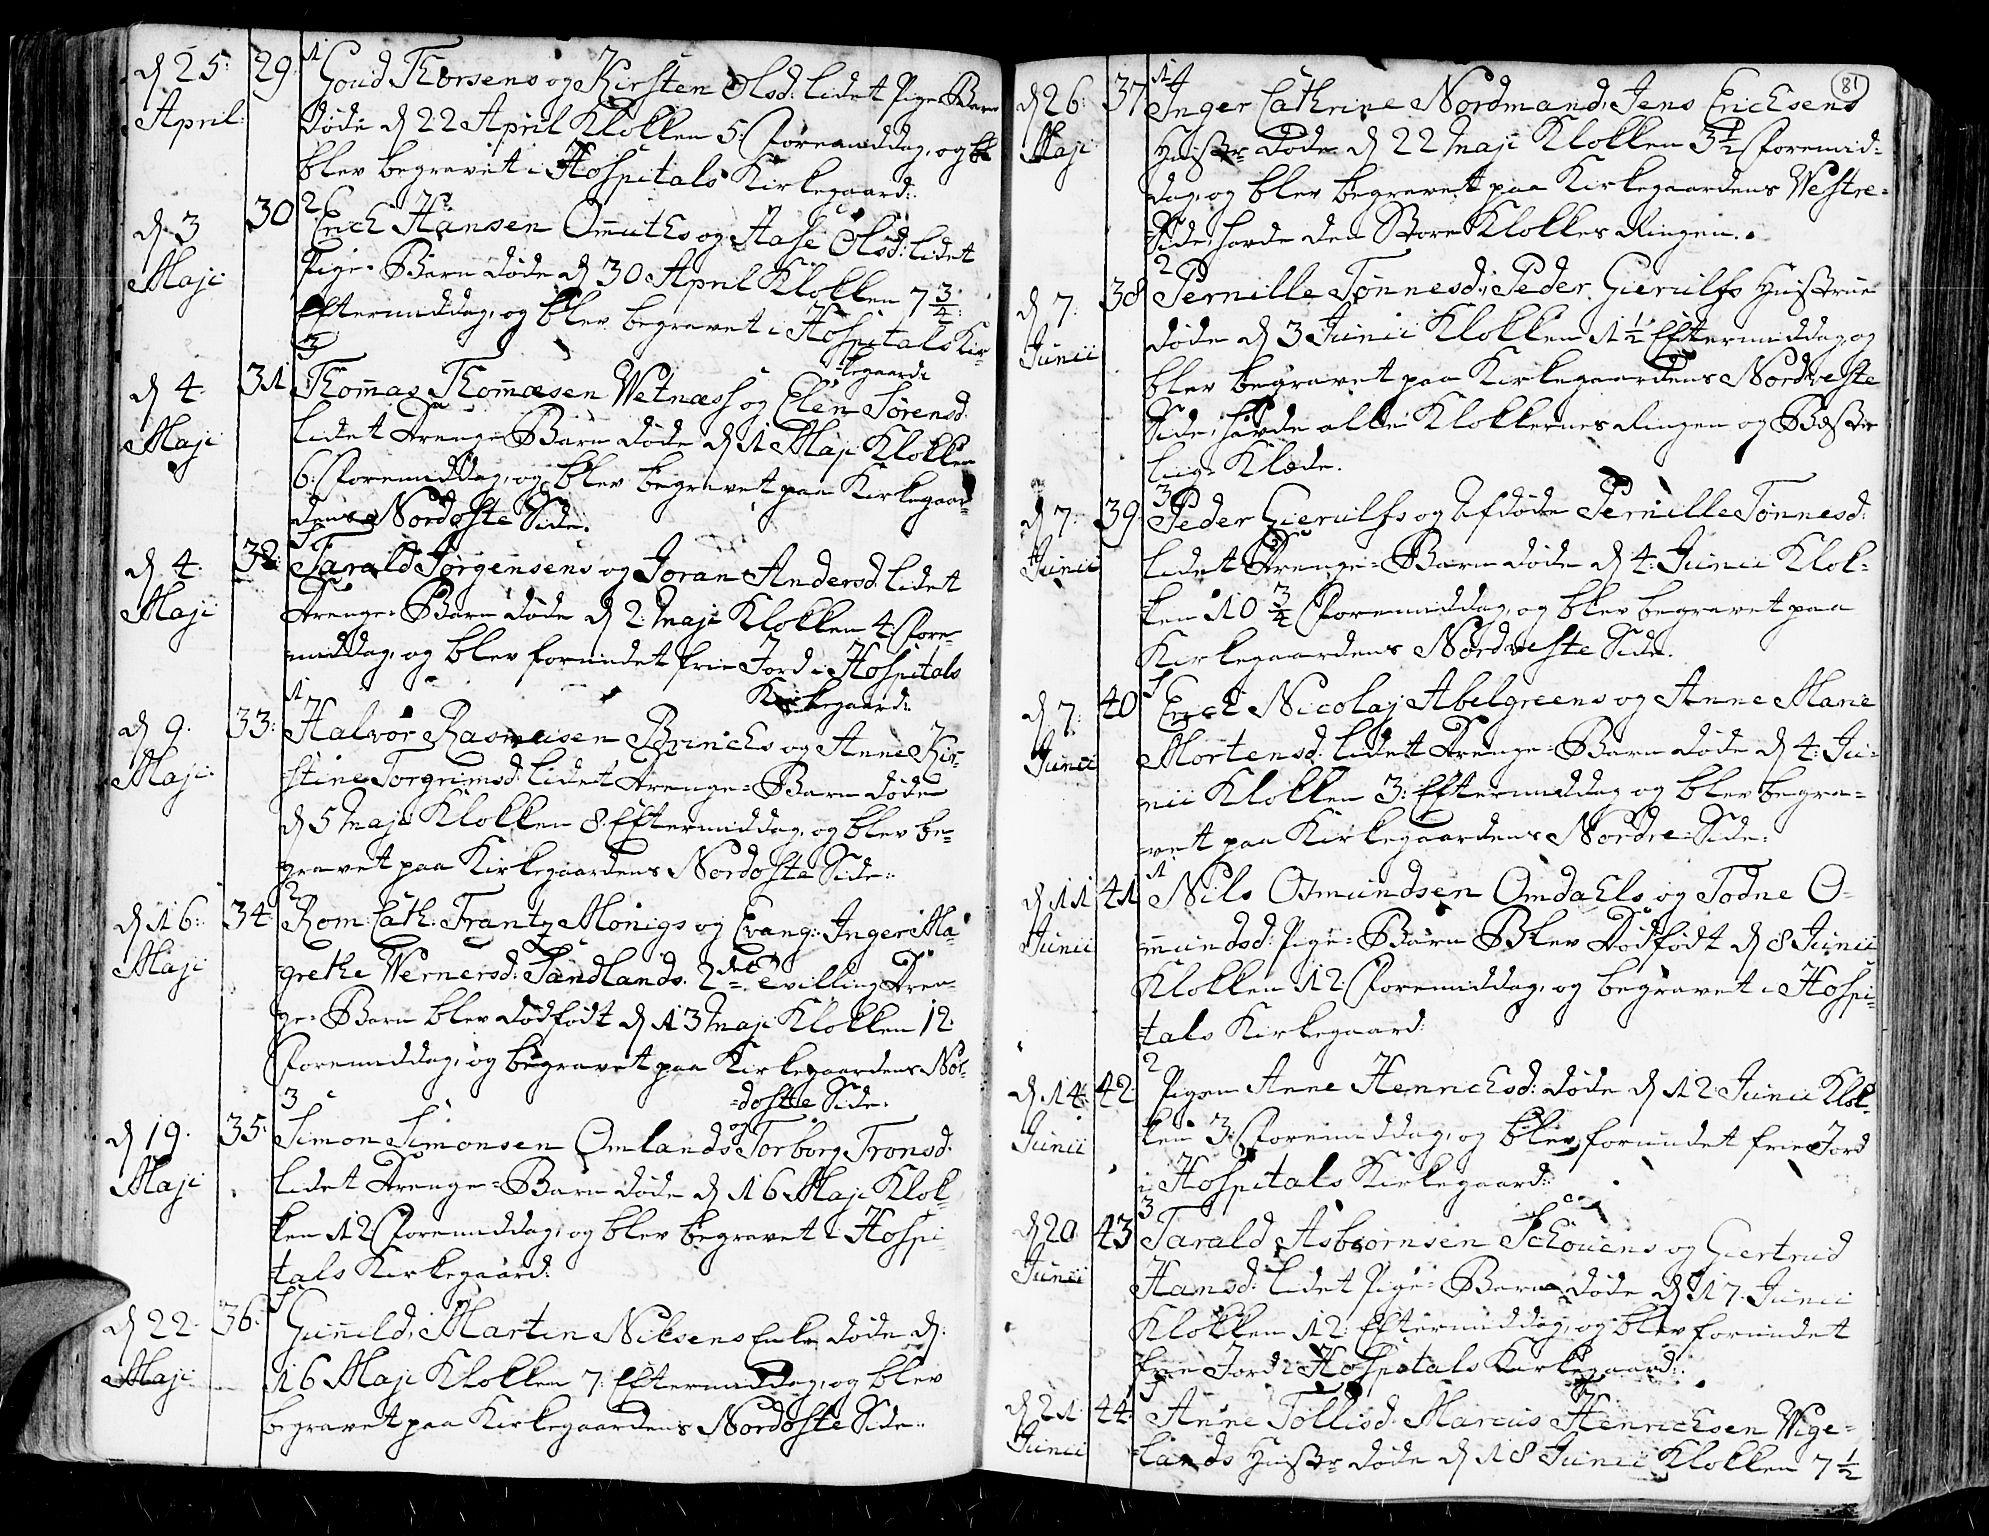 d 25: 29. 1 Goud Thorsens og Kirsten Olsd: lidet Pige-Barn
April: døde d 22 April Klokken 5: Formiddag, og
blev begravet i Hospitals Kirkegaard:
d. 3 30 2 Erich Hansen Omuths og Aase Olsd: lidet
Maji Pige-Barn døde d 30 April Klokken 7 3/4
Eftermiddag, og blev begravet i Hospitals Kir-
kegaard:
d 4. 31 3 Thomas Thomæsen Wetnæss og Elen Sørensd:
Maji lidet Drenge-Barn døde d 1 Maji Klokken
6: Foremiddag, og blev begravet paa Kirkegaar-
dens Nordoste Side.
d 4. 32: Tarald Jørgensens og Joran Andersd: lidet
Maji Drenge-Barn døde d 2: Maji Klokken 4: Fore-
middag, og blev forundet frie Jord i Hospitals
Kirkegaard:
d 9. 33: 1 Halvor Rasmusen Brincks og Anne Kir-
Maji: stine Torgrimsd: lidet Drenge-Barn døde
d 5 Maji Klokken 8: Eftermiddag, og blev be-
gravet paa Kirkegaardens Nordoste Side:
d 16: 34: 2 Rom: Cath: Frantz Mönigs og Evang: Inger Ma-
Maji grethe Wernersd: Sandlands 2det Tvilling Dren-
ge-Barn blev dødfødt d 13 Maji Klokken 12:
Foremiddag, og begravet paa Kirkegaardens Nor-
doste Side.
d 19. 35: 3 Simon Simonsen Omlands og Torborg Tronsd:
Maji lidet Drenge-Barn døde d 16 Maji Klok-
ken 12 Foremiddag, og blev begravet i Hospi-
tals Kirkegaard:
d 22. 36. Gunnild, Martin Nilsens Enke døde d:
Maji 16 Maji Klokken 7: Eftermiddag, og blev
begravet paa Kirkegaardens Nordoste Side:
81
d 26: 37 1 Inger Cathrine Nordmand, Jens Ericksens
Maji Hustr: døde d 22 Maji Klokken 3 1/2 Foremid-
dag, og blev begravet paa Kirkegaardens Westre-
Side, havde den Store Klokkes Ringen.
d 7. 38 2 Pernille Tønnesd:, Peder Gierulfs Hustrue
Junii døde d 3 Junii Klokken 1 1/2 Eftermiddag, og
blev begravet paa Kirkegaardens Nordveste
Side, havde alle Klokkernes Ringen og Beste
Liig-Klæde.
d 7. 39 3 Peder Gierulfs og Afdøde Pernille Tønnesd:
Junii lidet Drenge-Barn døde d 4: Junii Klok-
ken 10 3/4 Foremiddag, og blev begravet paa
Kirkegaardens Nordveste Side.
d 7. 40 Erich Nicolaj Abelgreens og Anne Marie
Junii Mortensd: lidet Drenge-Barn døde d 4: Ju-
nii Klokken 3: Eftermiddag og blev begra-
vet paa Kirkegaardens Nordre-Side:
d 11 41 1 Nils Osmundsen Omdahls og Todne O-
Junii mundsd: Pige-Barn Blev Dødfødt d 8 Junii
Klokken 12: Foremiddag, og begravet i Hospi-
tals Kirkegaard:
d 14: 42: 2 Pigen Anne Henrichsd: døde d 12 Junii Klok-
Junii ken 3: Foremiddag, og blev forundet frie Jord
i Hospitals Kirkegaard:
d 20 43 3 Tarald Asbiornsen Schouens og Giertrud
Junii Hansd: lidet Pige-Barn døde d 17. Junii
Klokken 12: Eftermiddag, og blev forundet
frie Jord i Hospitals Kirkegaard:
d 21. 44: Anne Tollisd: Marcus Henrichsen Wige-
Junii lands Hustr: døde d 18 Junii Klokken 7 1/2